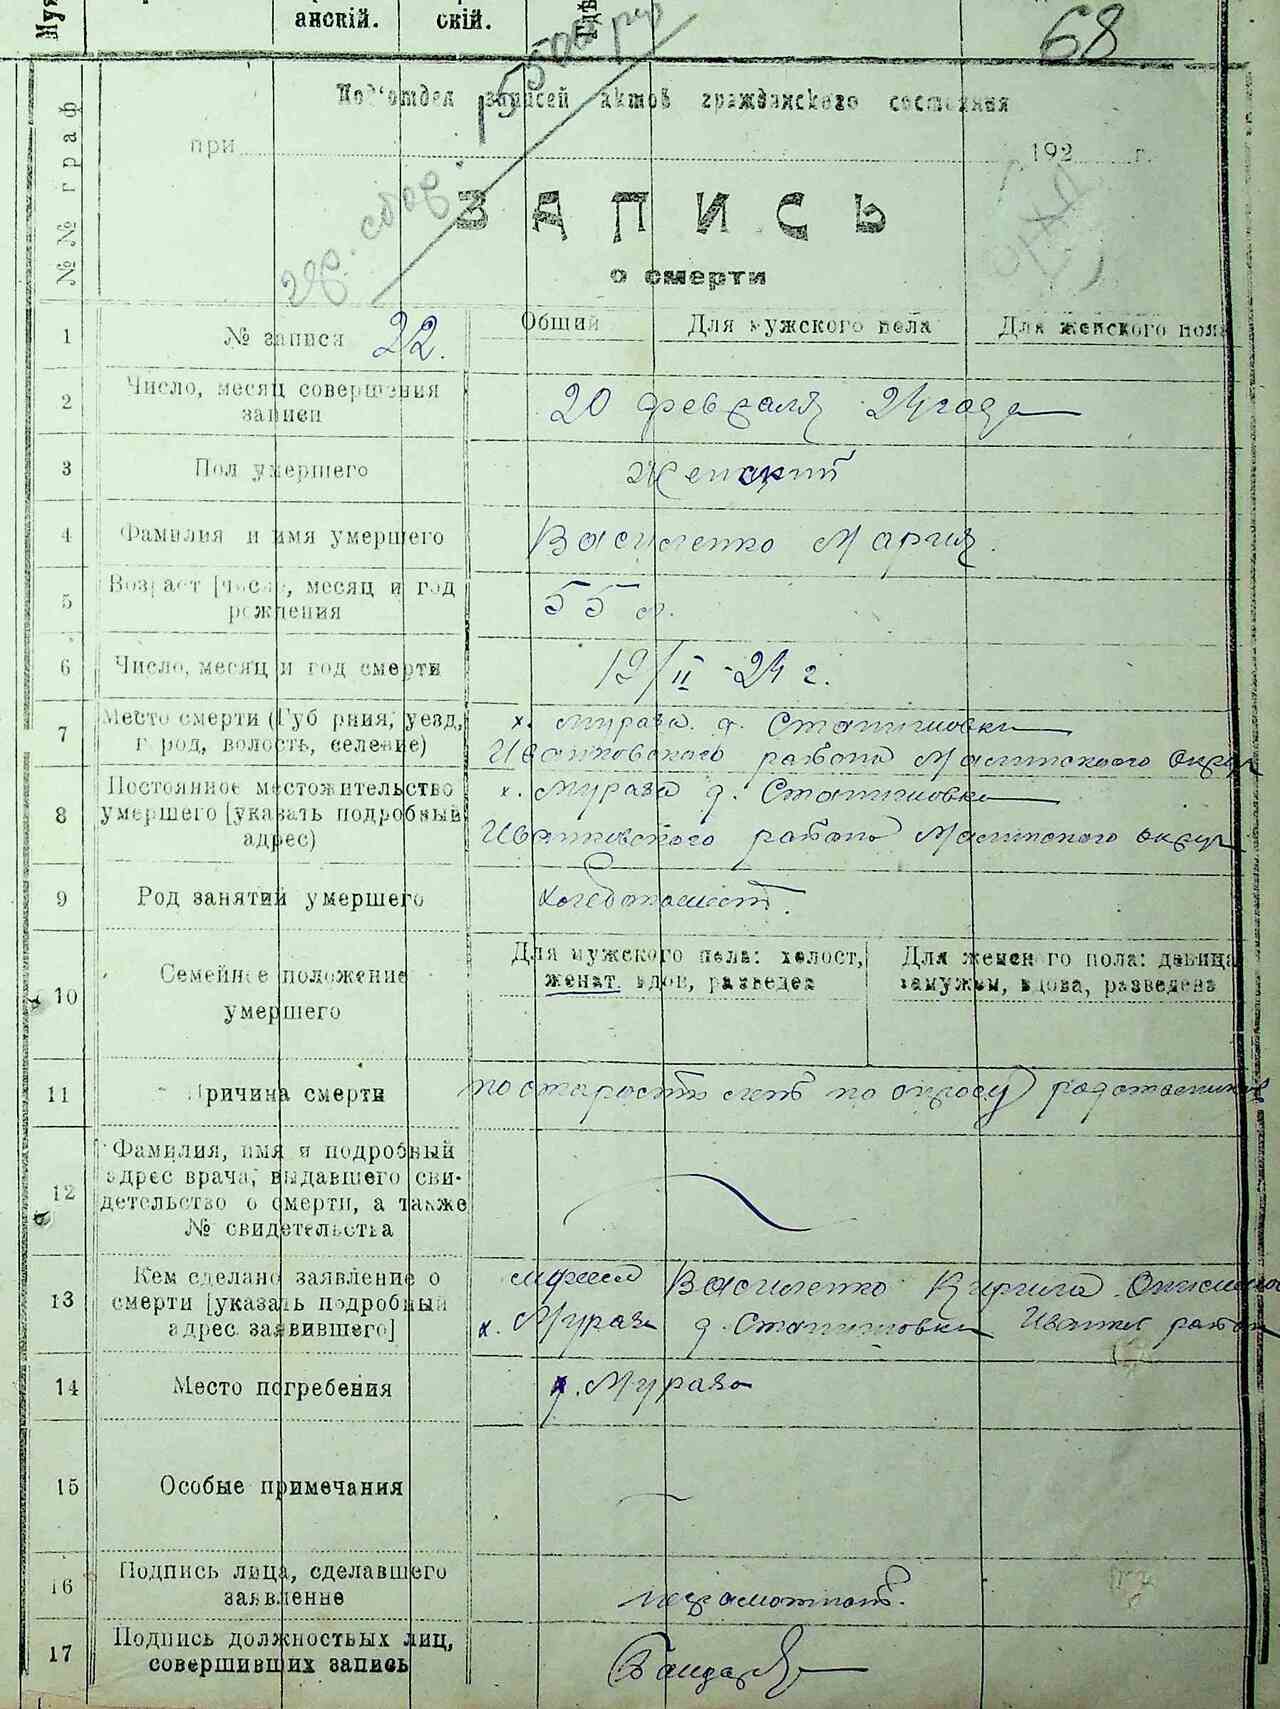 анскій.
скій.
Гдѣ
68
5500 р
гр. сбор.
№№ граф
Под'отдел записей актов гражданского состояния
при 192 г.
ЗАПИСЬ
о смерти
1 № записи 22. Общий Для мужского пола Для женского пола
2 Число, месяц совершения
записи
20 февраля 24 года
3 Пол умершего Женский
4 Фамилия и имя умершего Василенко Мария.
5 Возраст [число, месяц и год
рождения
55 л.
6 Число, месяц и год смерти 19/II - 24 г.
7 Место смерти (Губерния, уезд,
город, волость, селение)
х. Мураза д. Станишовки
Иванковского района Малинского Округ
8 Постоянное местожительство
умершего [указать подробный
адрес)
х. Мураза д. Станишовки
Иванковского района Малинского округ
9 Род занятий умершего хлебопашест.
10 Семейное положение
умершего
Для мужского пола: холост,
женат, вдов, разведен
Для женского пола: девица
замужем, вдова, разведена
11 Причина смерти по старости лет по опросу родственников
12 Фамилия, имя и подробный
адрес врача, выдавшего сви-
детельство о смерти, а также
№ свидетельства
13 Кем сделано заявление о
смерти [указать подробный
адрес заявившего]
мужем Василенко Кирила
х. Мураза д. Станишовки Иванк район
14 Место погребения х. Мураза
15 Особые примечания
16 Подпись лица, сделавшего
заявление
неграмотной.
17 Подпись должностных лиц,
совершивших запись